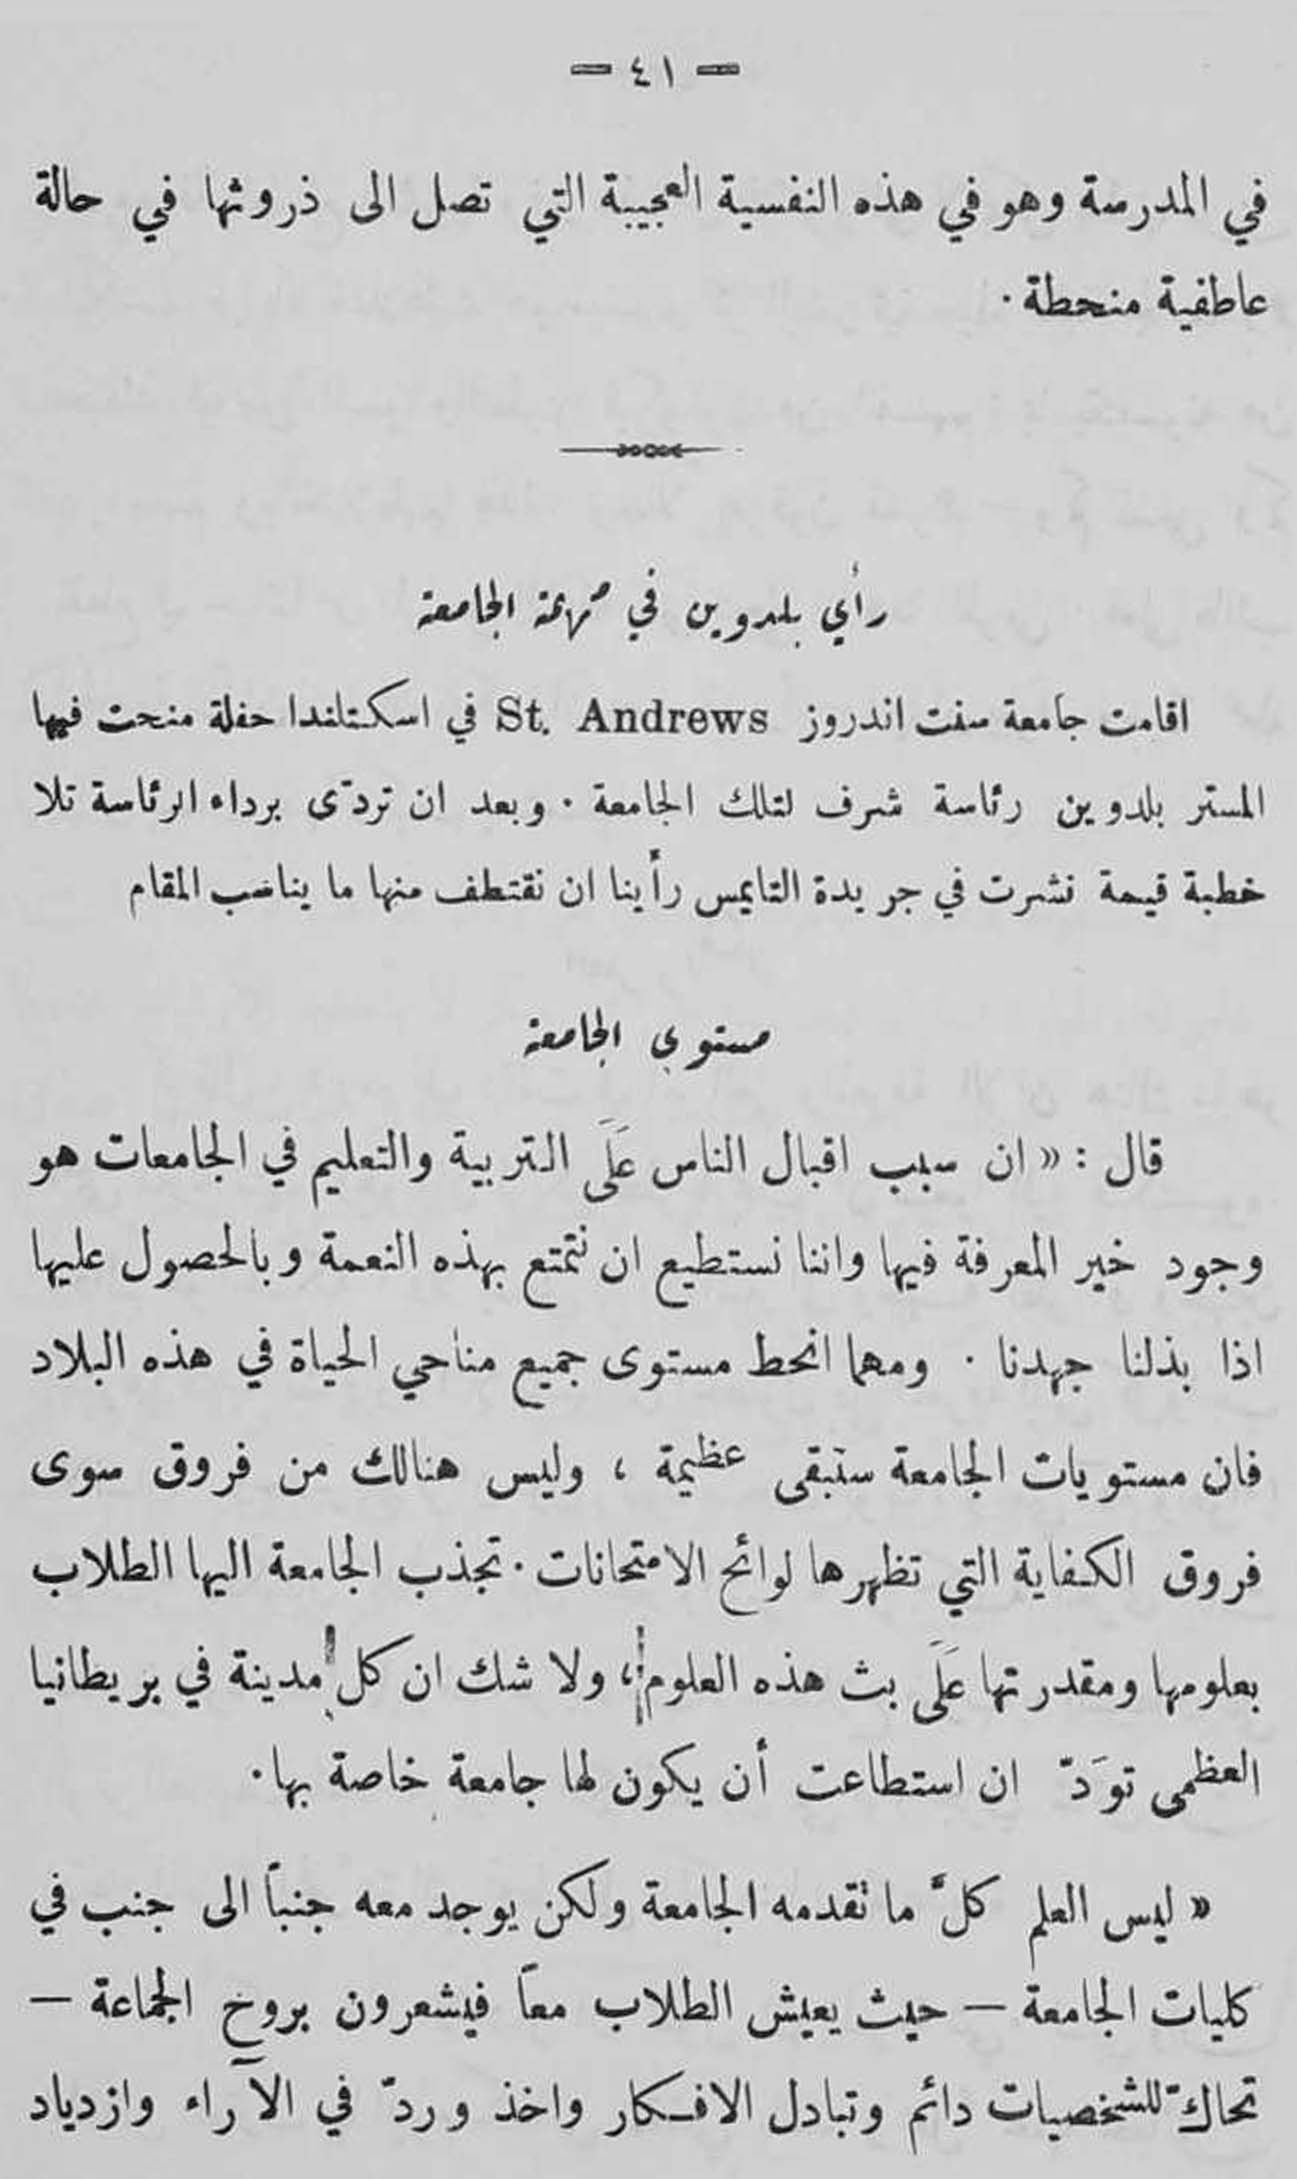 — ٤١ —
في المدرسة وهو في هذه النفسية العجيبة التي تصل الى ذروتها في حالة
عاطفية منحطة .
رأي بلدوين في مهمة الجامعة
اقامت جامعة سنت اندروز St. Andrews في اسكتلندا حفلة منحت فيها
المستر بلدوين رئاسة شرف لتلك الجامعة . وبعد ان تردّى برداء الرئاسة تلا
خطبة قيمة نشرت في جريدة التايمس رأينا ان نقتطف منها ما يناسب المقام
مستوى الجامعة
قال : « ان سبب اقبال الناس عَلَى التربية والتعليم في الجامعات هو
وجود خير المعرفة فيها واننا نستطيع ان نتمتع بهذه النعمة وبالحصول عليها
اذا بذلنا جهدنا . ومهما انحط مستوى جميع مناحي الحياة في هذه البلاد
فان مستويات الجامعة ستبقى عظيمة ، وليس هنالك من فروق سوى
فروق الكفاية التي تظهرها لوائح الامتحانات . تجذب الجامعة اليها الطلاب
بعلومها ومقدرتها عَلَى بث هذه العلوم ، ولا شك ان كل مدينة في بريطانيا
العظمى توَدّ ان استطاعت أن يكون لها جامعة خاصة بها .
« ليس العلم كلَّ ما تقدمه الجامعة ولكن يوجد معه جنباً الى جنب في
كليات الجامعة — حيث يعيش الطلاب معاً فيشعرون بروح الجماعة —
تحاكّ للشخصيات دائم وتبادل الافكار واخذ وردّ في الآراء وازدياد